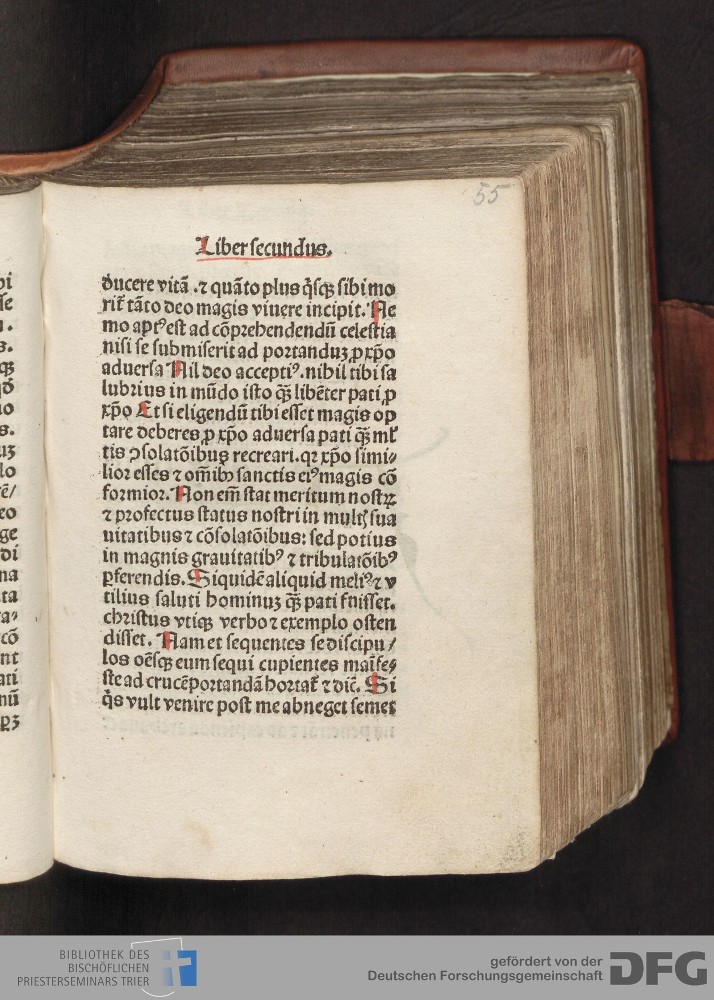 55
Liber secundus.
ducere vitā .⁊ quāto plus q̄sq; sibi mo
rit̄ tāto deo magis viuere incipit. Ne
mo aptꝰ est ad cōprehendendū celestia
nisi se submiserit ad portanduꝫ ꝓ xp̄o
aduersa Nil deo acceptiꝰ. nihil tibi sa
lubrius in mūdo isto q̄ꝫ libēter pati ꝓ
xp̄o Et si eligendū tibi esset magis op
tare deberes ꝓ xp̄o aduersa pati q̄ꝫ ml̄
tis ꝯsolatōibus recreari. qꝛ xp̄o simi⸗
lior esses ⁊ om̄ibꝫ sanctis eiꝰ magis cō
formior. Non em̄ stat meritum nostrꝝ
⁊ profectus status nostri in multꝭ sua
uitatibus ⁊ cōsolatōibus: sed potius
in magnis grauitatibꝰ ⁊ tribulatōibꝰ
ꝑferendis. Siquidē aliquid meliꝰ ⁊ v
tilius saluti hominuꝫ q̄ꝫ pati fuisset.
christus vtiqꝫ verbo ⁊ exemplo osten
disset. Nam et sequentes se discipu/
los oēsqꝫ eum sequi cupientes maīfe⸗
ste ad crucē portandā hortat̄ ⁊ dic̄. Si
q̄s vult venire post me abneget semet
BIBLIOTHEK DES
BISCHÖFLICHEN
PRIESTERSEMINARS TRIER
gefördert von der
Deutschen Forschungsgemeinschaft
DFG